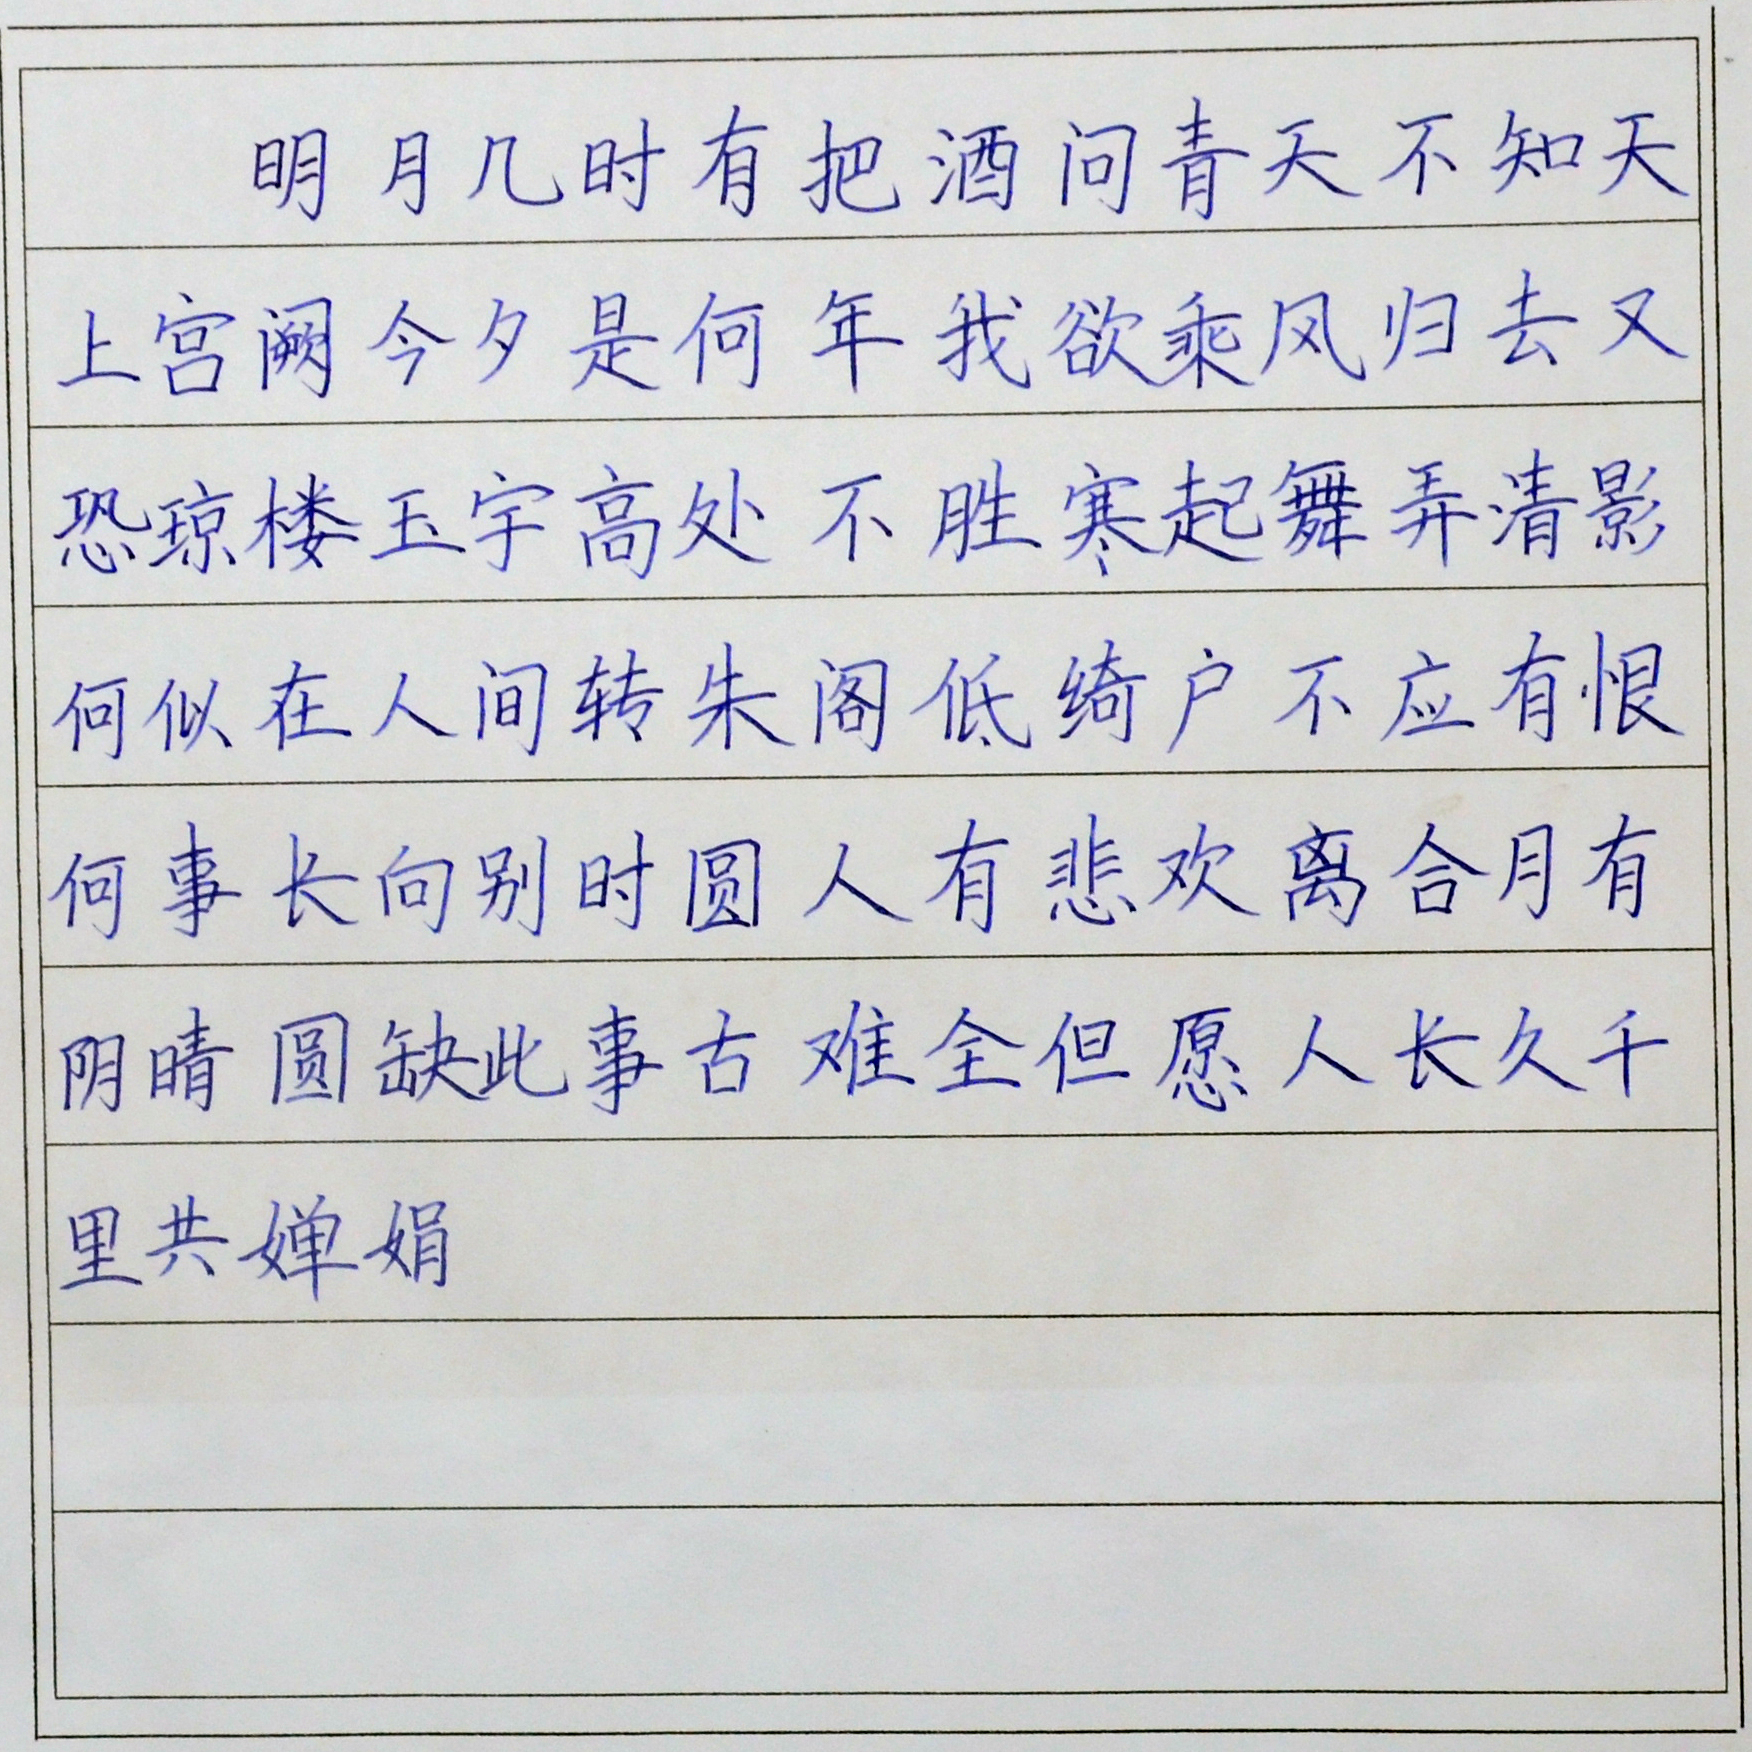 明月几时有把酒问青天不知天
上宫阙今夕是何年我欲乘风归去又
恐琼楼玉宇高处不胜寒起舞弄清影
何似在人间转朱阁低绮户不应有恨
何事长向别时圆人有悲欢离合月有
阴晴圆缺此事古难全但愿人长久千
里共婵娟